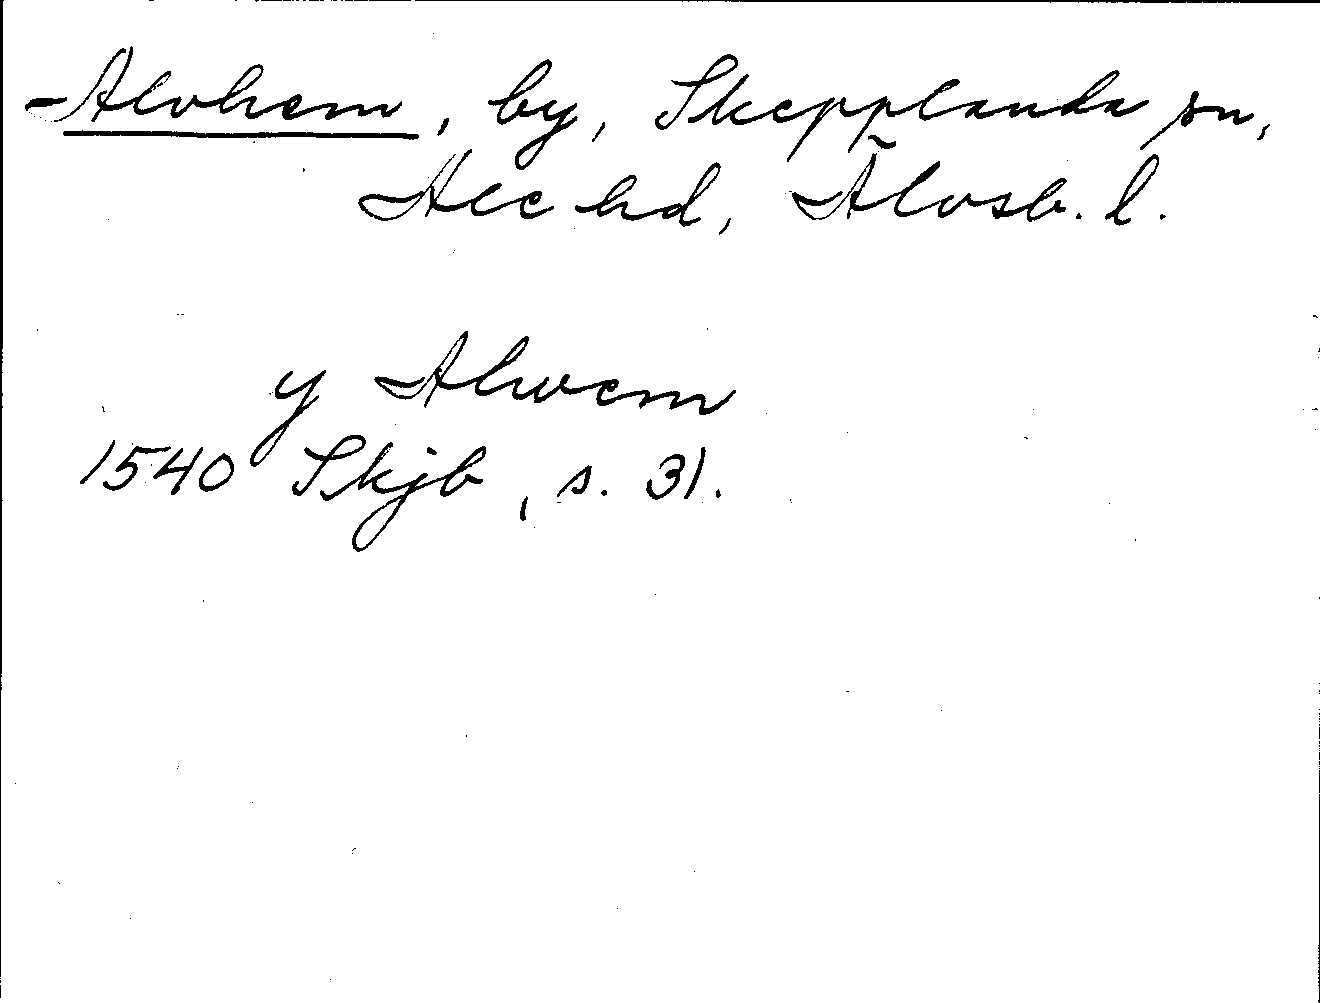 Alvhem, by, Skepplanda sn,
Ale hd, Älvsb. l.
y Alwem
1540 Skjb, s. 31.